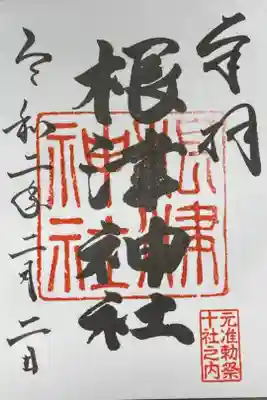 奉拝
根津神社
根津神社
令和二年二月二日
元准勅祭
十社之内